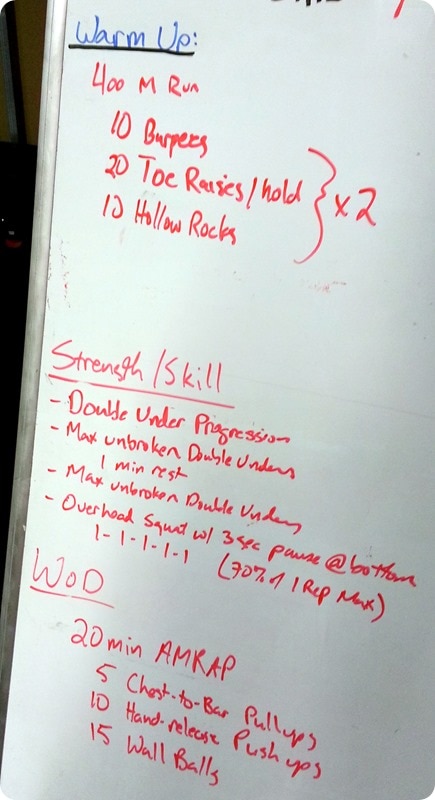 Warm Up:
400 M Run
10 Burpees
20 Toe Raises/hold
10 Hollow Rocks
} x2
Strength/Skill
- Double Under Progression
- Max unbroken Double Unders
1 min rest
- Max unbroken Double Unders
- Overhead Squat w/ 3 sec pause @ bottom
1-1-1-1-1 (70% of 1 Rep Max)
WOD
20 min AMRAP
5 Chest-to-Bar Pullups
10 Hand-release Push ups
15 Wall Balls